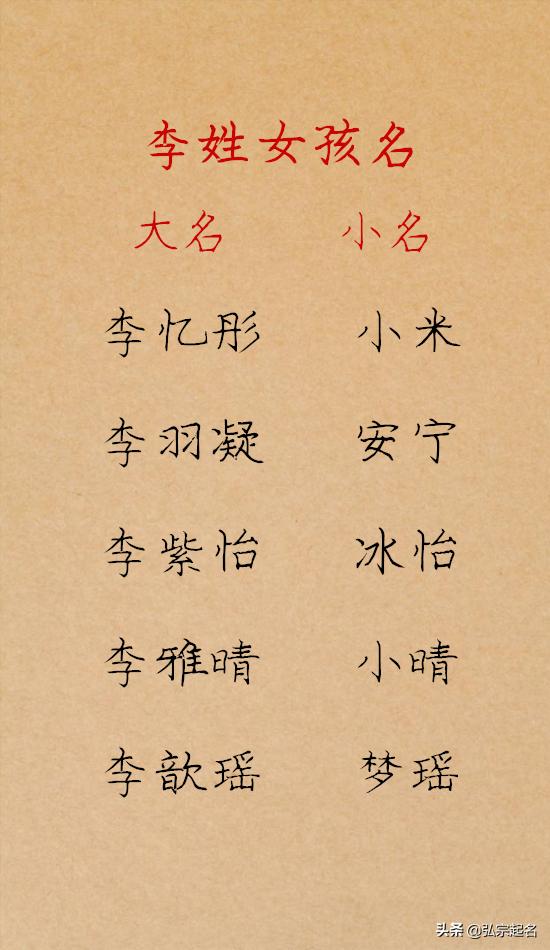 李姓女孩名
大名 小名
李忆彤 小米
李羽凝 安宁
李紫怡 冰怡
李雅晴 小晴
李歆瑶 梦瑶
头条 @弘宗起名